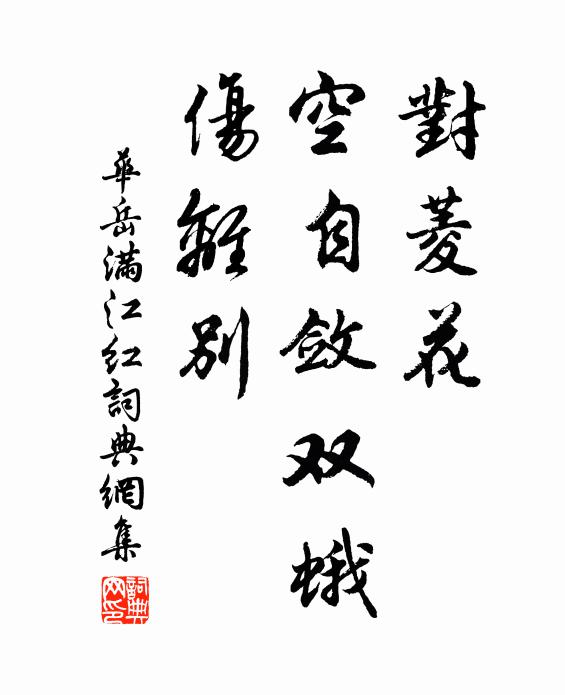 對菱花
空自斂双蛾
傷離別
華岳满江红詞典網集
詞典网印